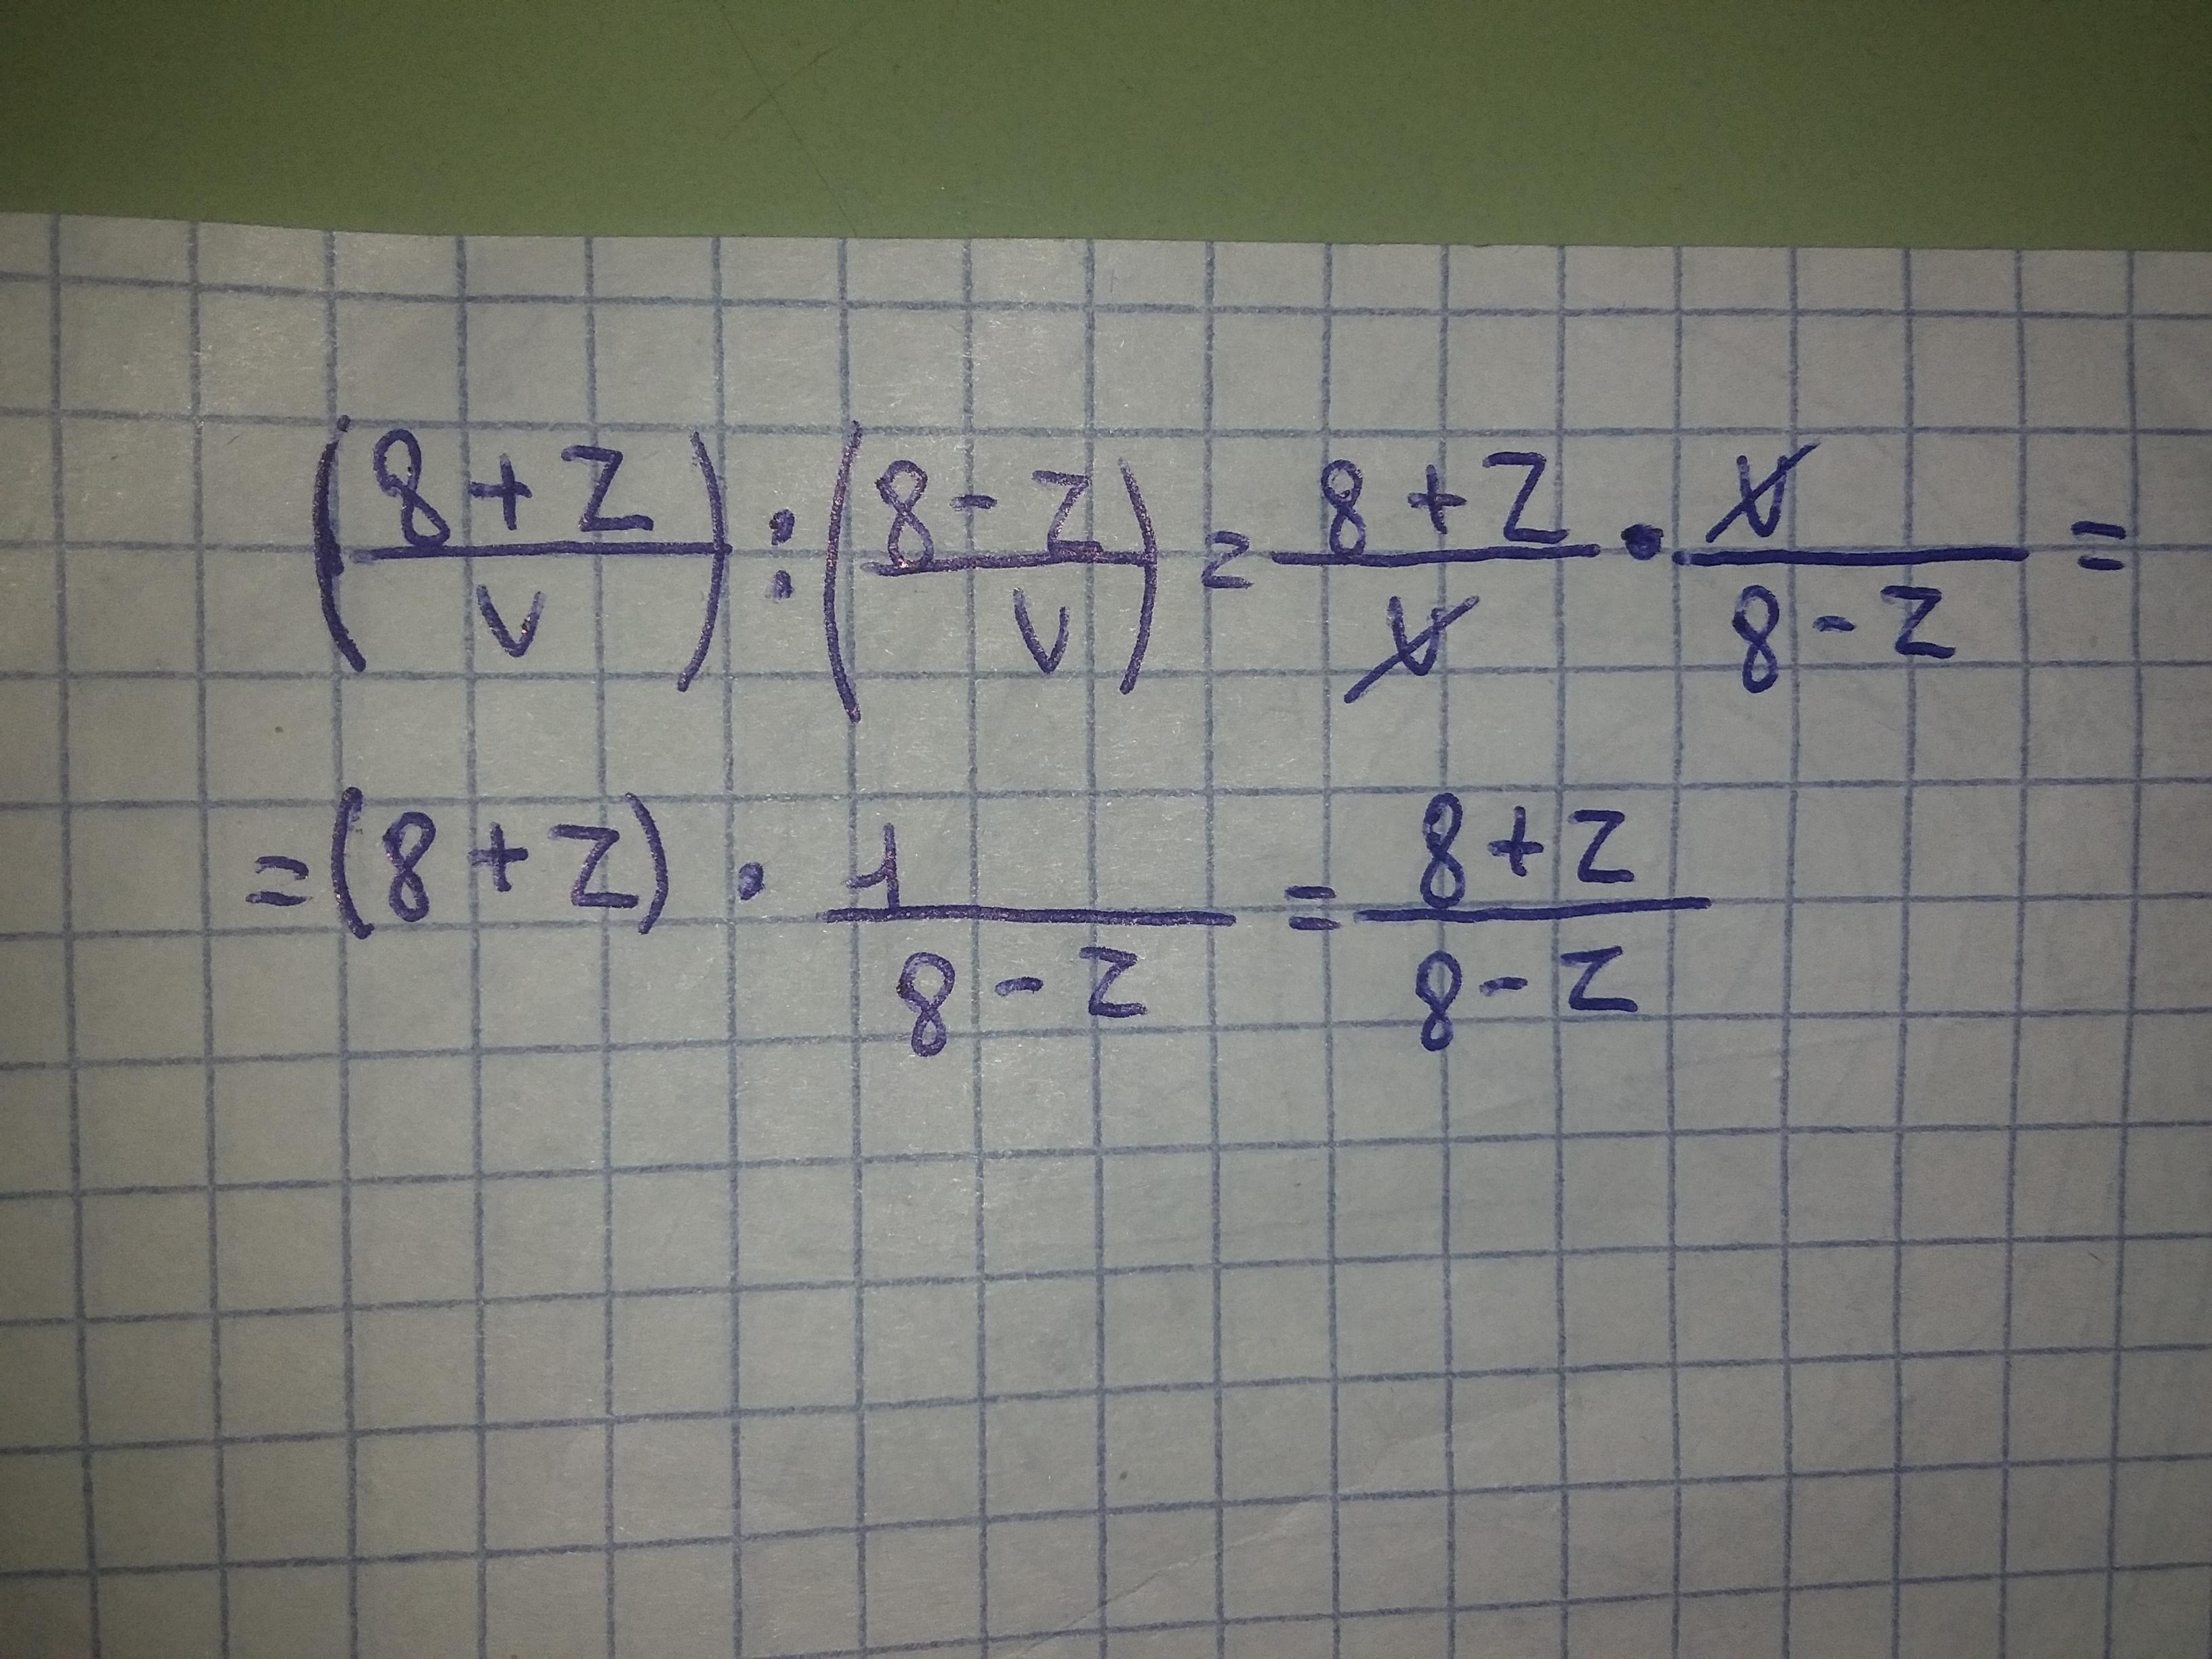 (8+z/v) : (8-z/v) = 8+z/v · v/8-z =
= (8+z) · 1/8-z = 8+z/8-z